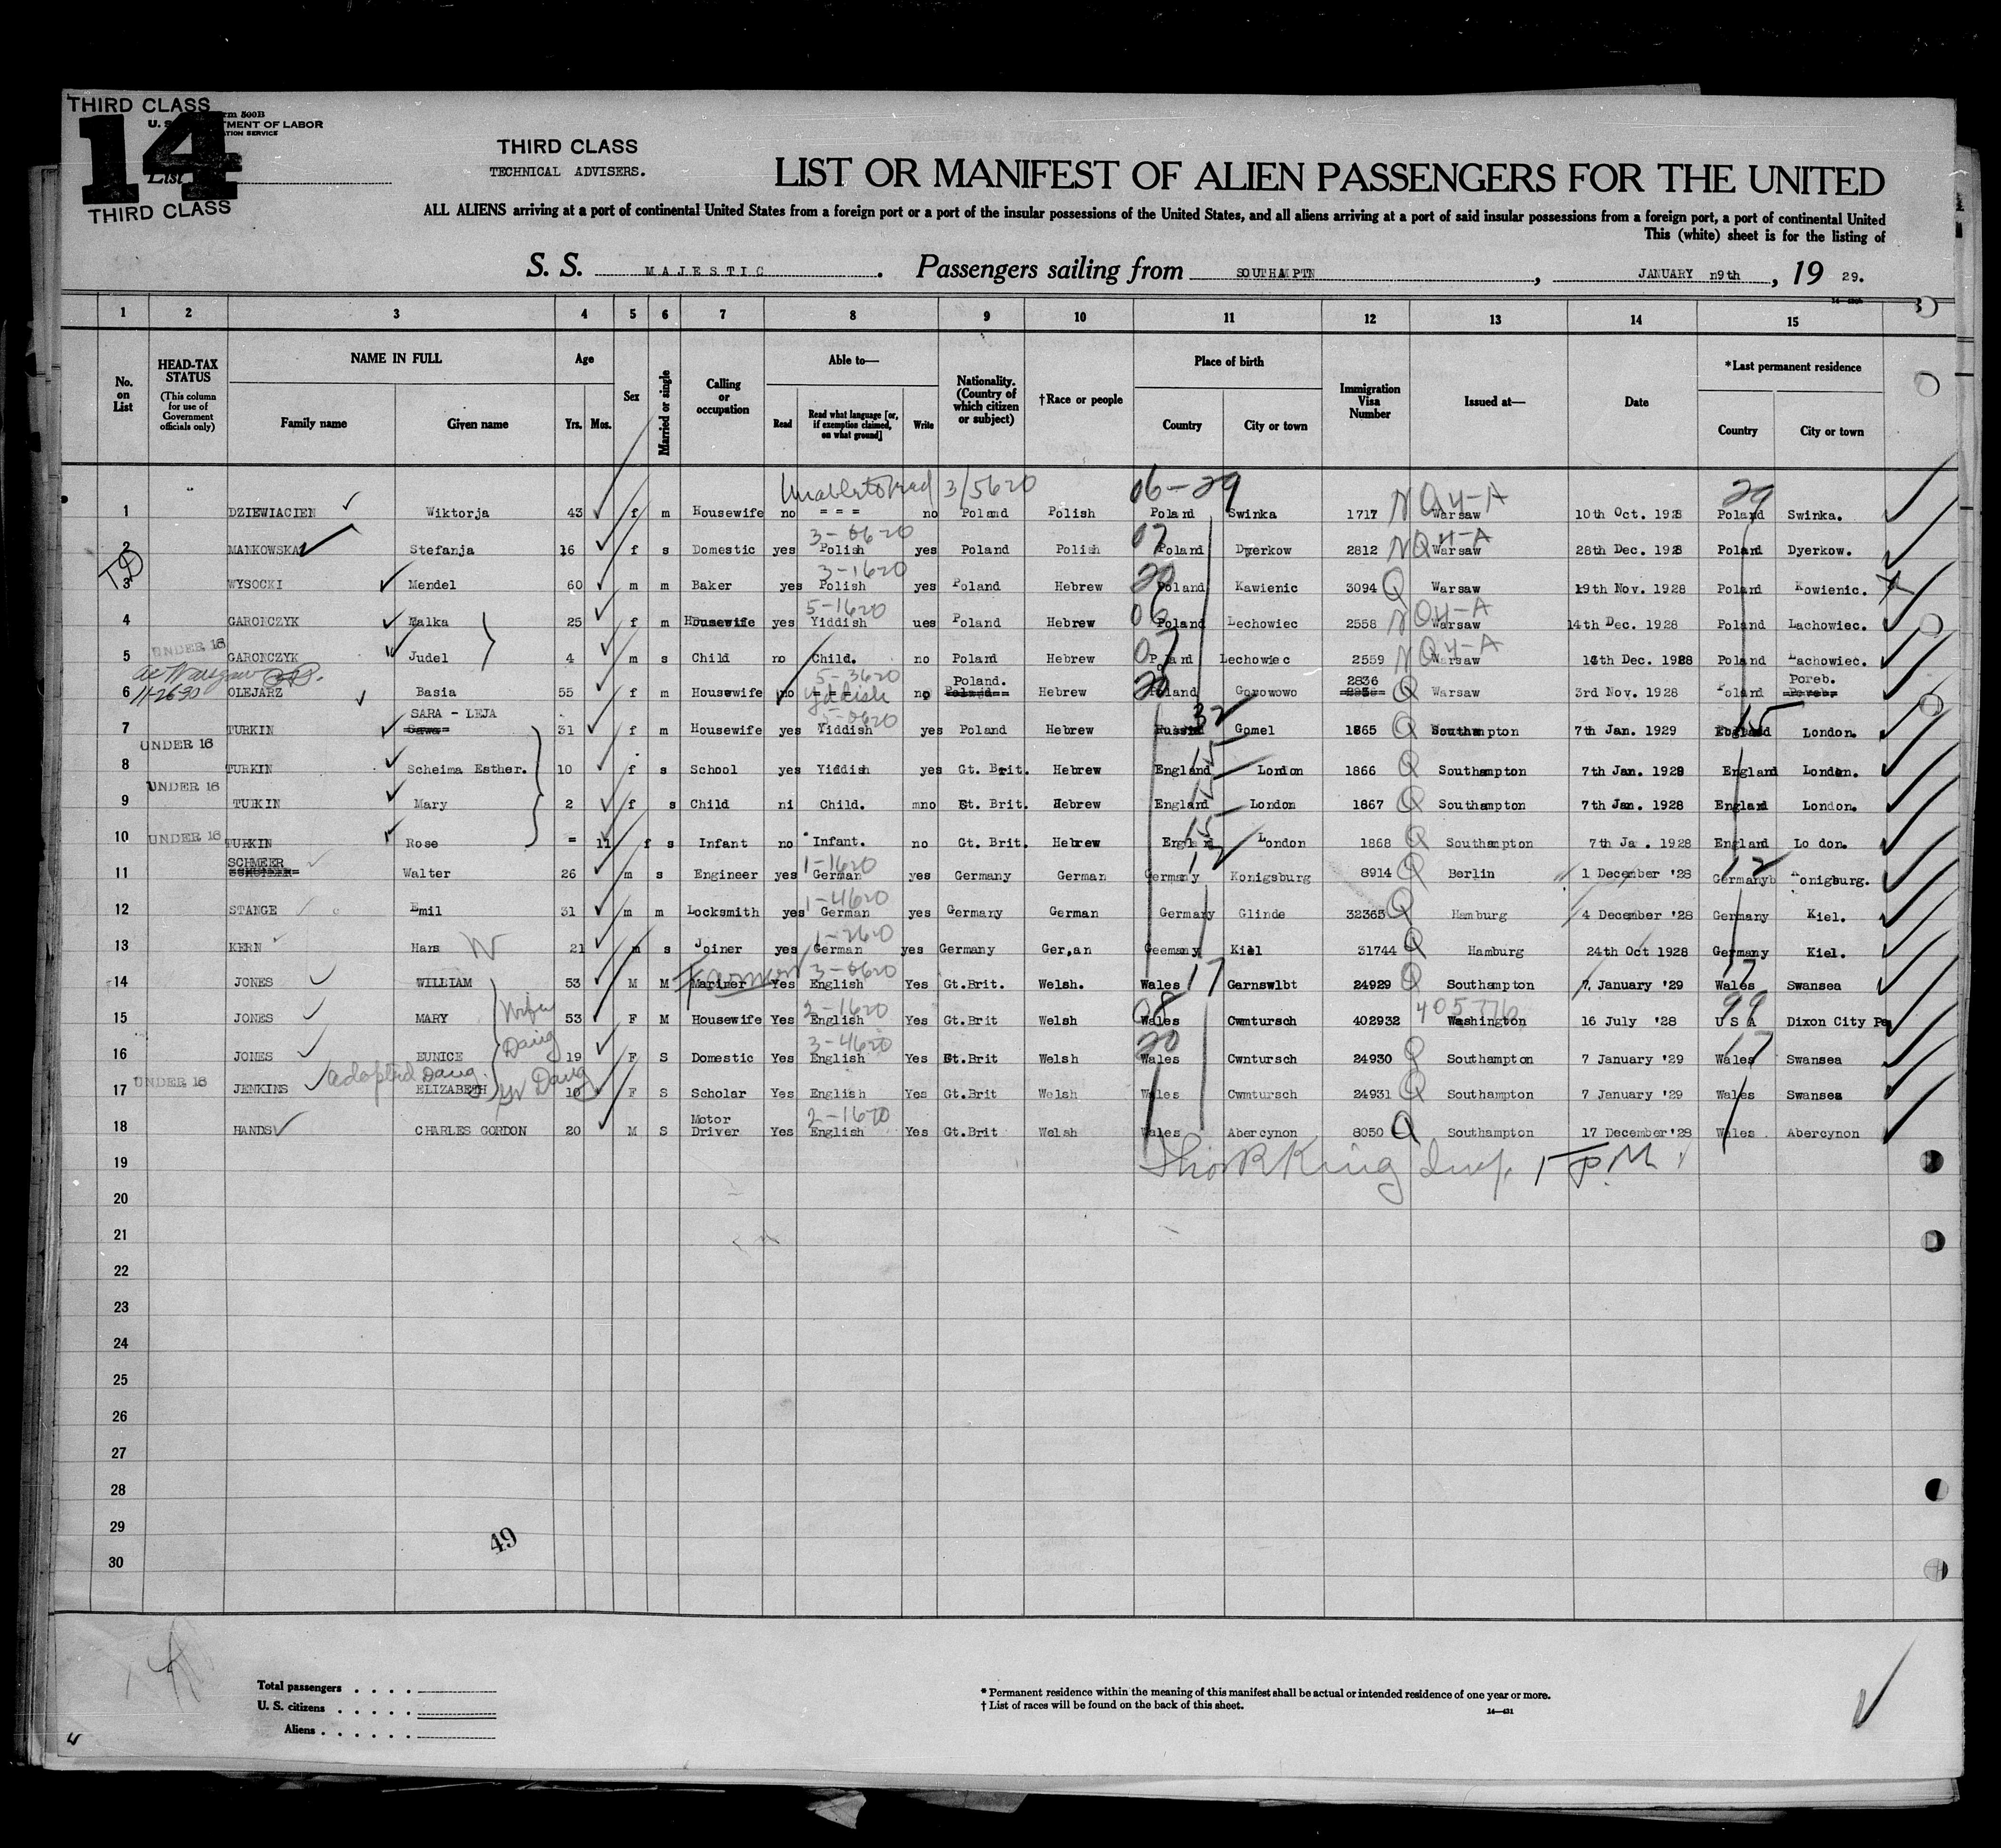 THIRD CLASS
14
rm 500B
U. S. TMENT OF LABOR
ATION SERVICE
List
THIRD CLASS
THIRD CLASS
TECHNICAL ADVISERS.
LIST OR MANIFEST OF ALIEN PASSENGERS FOR THE UNITED
ALL ALIENS arriving at a port of continental United States from a foreign port or a port of the insular possessions of the United States, and all aliens arriving at a port of said insular possessions from a foreign port, a port of continental United
This (white) sheet is for the listing of
S. S. MAJESTIC. Passengers sailing from SOUTHAMPTN, JANUARY n9th, 19 29.
1 2 3 4 5 6 7 8 9 10 11 12 13 14 15
No. on List
HEAD-TAX STATUS (This column for use of Government officials only)
NAME IN FULL
Family name Given name
Age
Yrs. Mos.
Sex
Married or single
Calling or occupation
Able to—
Read Read what language [or, if exemption claimed, on what ground] Write
Nationality. (Country of which citizen or subject)
†Race or people
Place of birth
Country City or town
Immigration Visa Number
Issued at—
Date
*Last permanent residence
Country City or town
Unable to read 3/5620 06-29 29
1 DZIEWIACIEN Wiktorja 43 f m Housewife no = = = no Poland Polish Poland Swinka 1717 NQ4-A Warsaw 10th Oct. 1928 Poland Swinka.
3-0620 07
2 MANKOWSKA Stefanja 16 f s Domestic yes Polish yes Poland Polish Poland Dyerkow 2812 NQ4-A Warsaw 28th Dec. 1928 Poland Dyerkow.
3-1620 20
3 WYSOCKI Mendel 60 m m Baker yes Polish yes Poland Hebrew Poland Kawienic 3094 Q Warsaw 19th Nov. 1928 Poland Kowienic.
5-1620 06
4 GARONCZYK Malka 25 f m Housewife yes Yiddish ues Poland Hebrew Poland Lechowiec 2558 NQ4-A Warsaw 14th Dec. 1928 Poland Lachowiec.
UNDER 16 07
5 GARONCZYK Judel 4 m s Child no Child. no Poland Hebrew Poland Lechowiec 2559 NQ4-A Warsaw 14th Dec. 1928 Poland Lachowiec.
5-3620 Poland. 20 2836 Poreb.
6 11-2690 OLEJARZ Basia 55 f m Housewife no = = = Yiddish no Poland Hebrew Poland Gorowowo Q Warsaw 3rd Nov. 1928 Poland Poreb.
SARA - LEJA 5-0620 32 15
7 TURKIN Sawa 31 f m Housewife yes Yiddish yes Poland Hebrew Russia Gomel 1865 Q Southampton 7th Jan. 1929 England London.
UNDER 16 15
8 TURKIN Scheima Esther. 10 f s School yes Yiddish yes Gt. Brit. Hebrew England London 1866 Q Southampton 7th Jan. 1928 England London.
UNDER 16 15
9 TURKIN Mary 2 f s Child ni Child. mno Gt. Brit. Hebrew England London 1867 Q Southampton 7th Jan. 1928 England London.
UNDER 16 15
10 TURKIN Rose = 11 f s Infant no Infant. no Gt. Brit. Hebrew England London 1868 Q Southampton 7th Ja . 1928 England Lo don.
SCHMEER 1-1620 12 12
11 Walter 26 m s Engineer yes German yes Germany German Germany Konigsburg 8914 Q Berlin 1 December '28 Germanyb onigsurg.
1-4620
12 STANGE Emil 31 m m Locksmith yes German yes Germany German Germany Glinde 32365 Q Hamburg 4 December '28 Germany Kiel.
1-2620
13 KERN Hans W 21 m s Joiner yes German yes Germany Ger,an Geemany Kiel 31744 Q Hamburg 24th Oct 1928 Germany Kiel.
Farmer 3-0620 17 17
14 JONES WILLIAM 53 M M Mariner Yes English Yes Gt.Brit. Welsh. Wales Garnswlbt 24929 Q Southampton 7 January '29 Wales Swansea
Wife 2-1620 08 405776 99
15 JONES MARY 53 F M Housewife Yes English Yes Gt.Brit Welsh Wales Cwmtursch 402932 Washington 16 July '28 U S A Dixon City Pa
Daug 3-4620 20 17
16 JONES EUNICE 19 F S Domestic Yes English Yes Gt.Brit Welsh Wales Cwntursch 24930 Q Southampton 7 January '29 Wales Swansea
UNDER 16 adopted Daug. Gr Daug
17 JENKINS ELIZABETH 10 F S Scholar Yes English Yes Gt.Brit Welsh Wales Cwmtursch 24931 Q Southampton 7 January '29 Wales Swansea
Motor 2-1620
18 HANDS CHARLES GORDON 20 M S Driver Yes English Yes Gt.Brit Welsh Wales Abercynon 8050 Q Southampton 17 December '28 Wales Abercynon
19
20
21
22
23
24
25
26
27
28
29
30
49
Total passengers . . . .
U. S. citizens . . . . .
Aliens . . . . .
* Permanent residence within the meaning of this manifest shall be actual or intended residence of one year or more.
† List of races will be found on the back of this sheet.
14—431